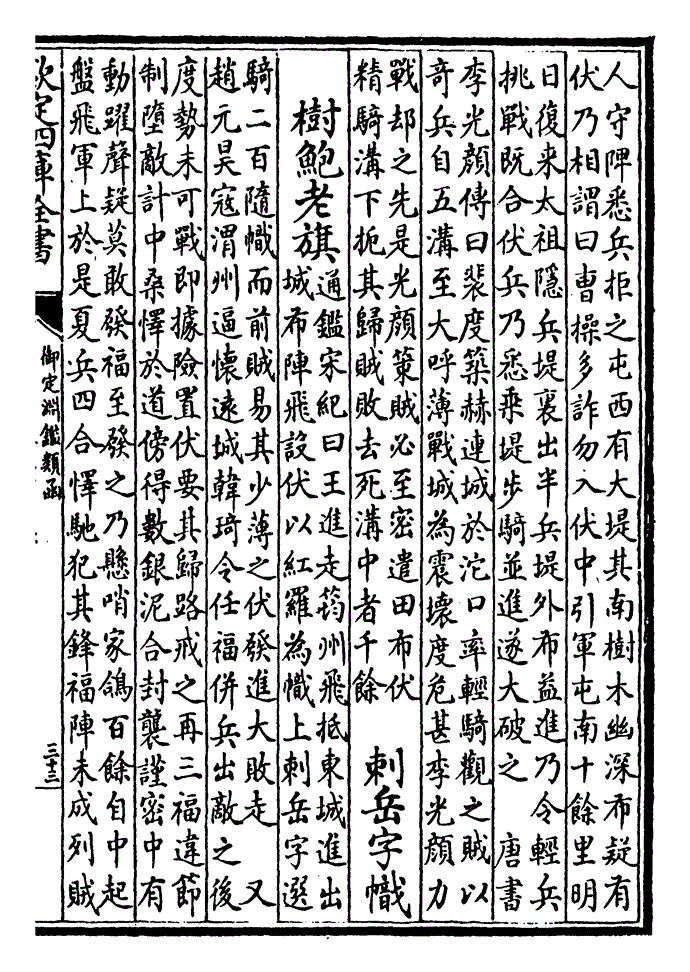 人守陴悉兵拒之屯西有大堤其南樹木幽深布疑有
伏乃相謂曰曹操多詐勿入伏中引軍屯南十餘里明
日復来太祖隱兵堤裏出半兵堤外布益進乃令輕兵
挑戰既合伏兵乃悉乗堤步騎並進遂大破之 唐書
李光顔傳曰裴度築赫連城於沱口率輕騎觀之賊以
奇兵自五溝至大呼薄戰城為震壊度危甚李光顔力
戰却之先是光顔策賊必至密遣田布伏
精騎溝下扼其歸賊敗去死溝中者千餘
刺岳字幟
樹鮑老旗
通鑑宋紀曰王進走筠州飛抵東城進出
城布陣飛設伏以紅羅為幟上刺岳字選
騎二百隨幟而前賊易其少薄之伏發進大敗走 又
趙元昊寇渭州逼懷遠城韓琦令任福併兵出敵之後
度勢未可戰即據險置伏要其歸路戒之再三福違節
制墮敵計中桑懌於道傍得數銀泥合封襲謹密中有
動躍聲疑莫敢發福至發之乃懸哨家鴿百餘自中起
盤飛軍上於是夏兵四合懌馳犯其鋒福陣未成列賊
欽定四庫全書
御定淵鑑類函
三十三